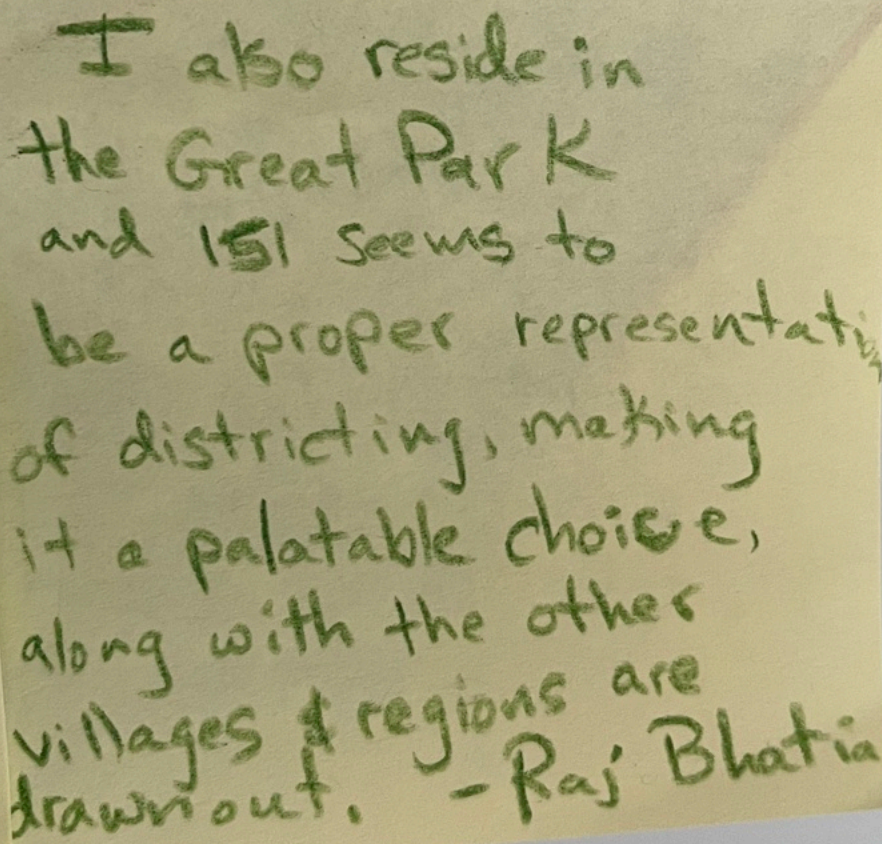 I also reside in
the Great Park
and 151 seems to
be a proper representation
of districting, making
it a palatable choice,
along with the other
villages & regions are
drawn out. - Raj Bhatia